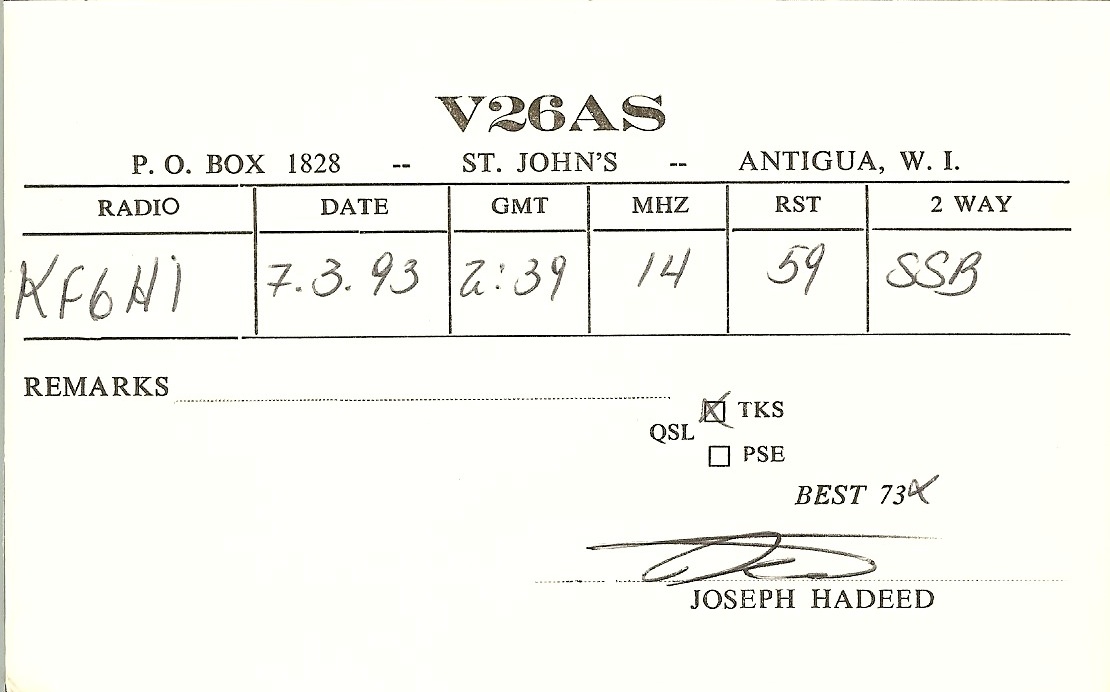 V26AS
P. O. BOX 1828 -- ST. JOHN'S -- ANTIGUA, W. I.
RADIO DATE GMT MHZ RST 2 WAY
KF6HI 7.3.93 2:39 14 59 SSB
REMARKS
QSL TKS
PSE
BEST 73
JOSEPH HADEED